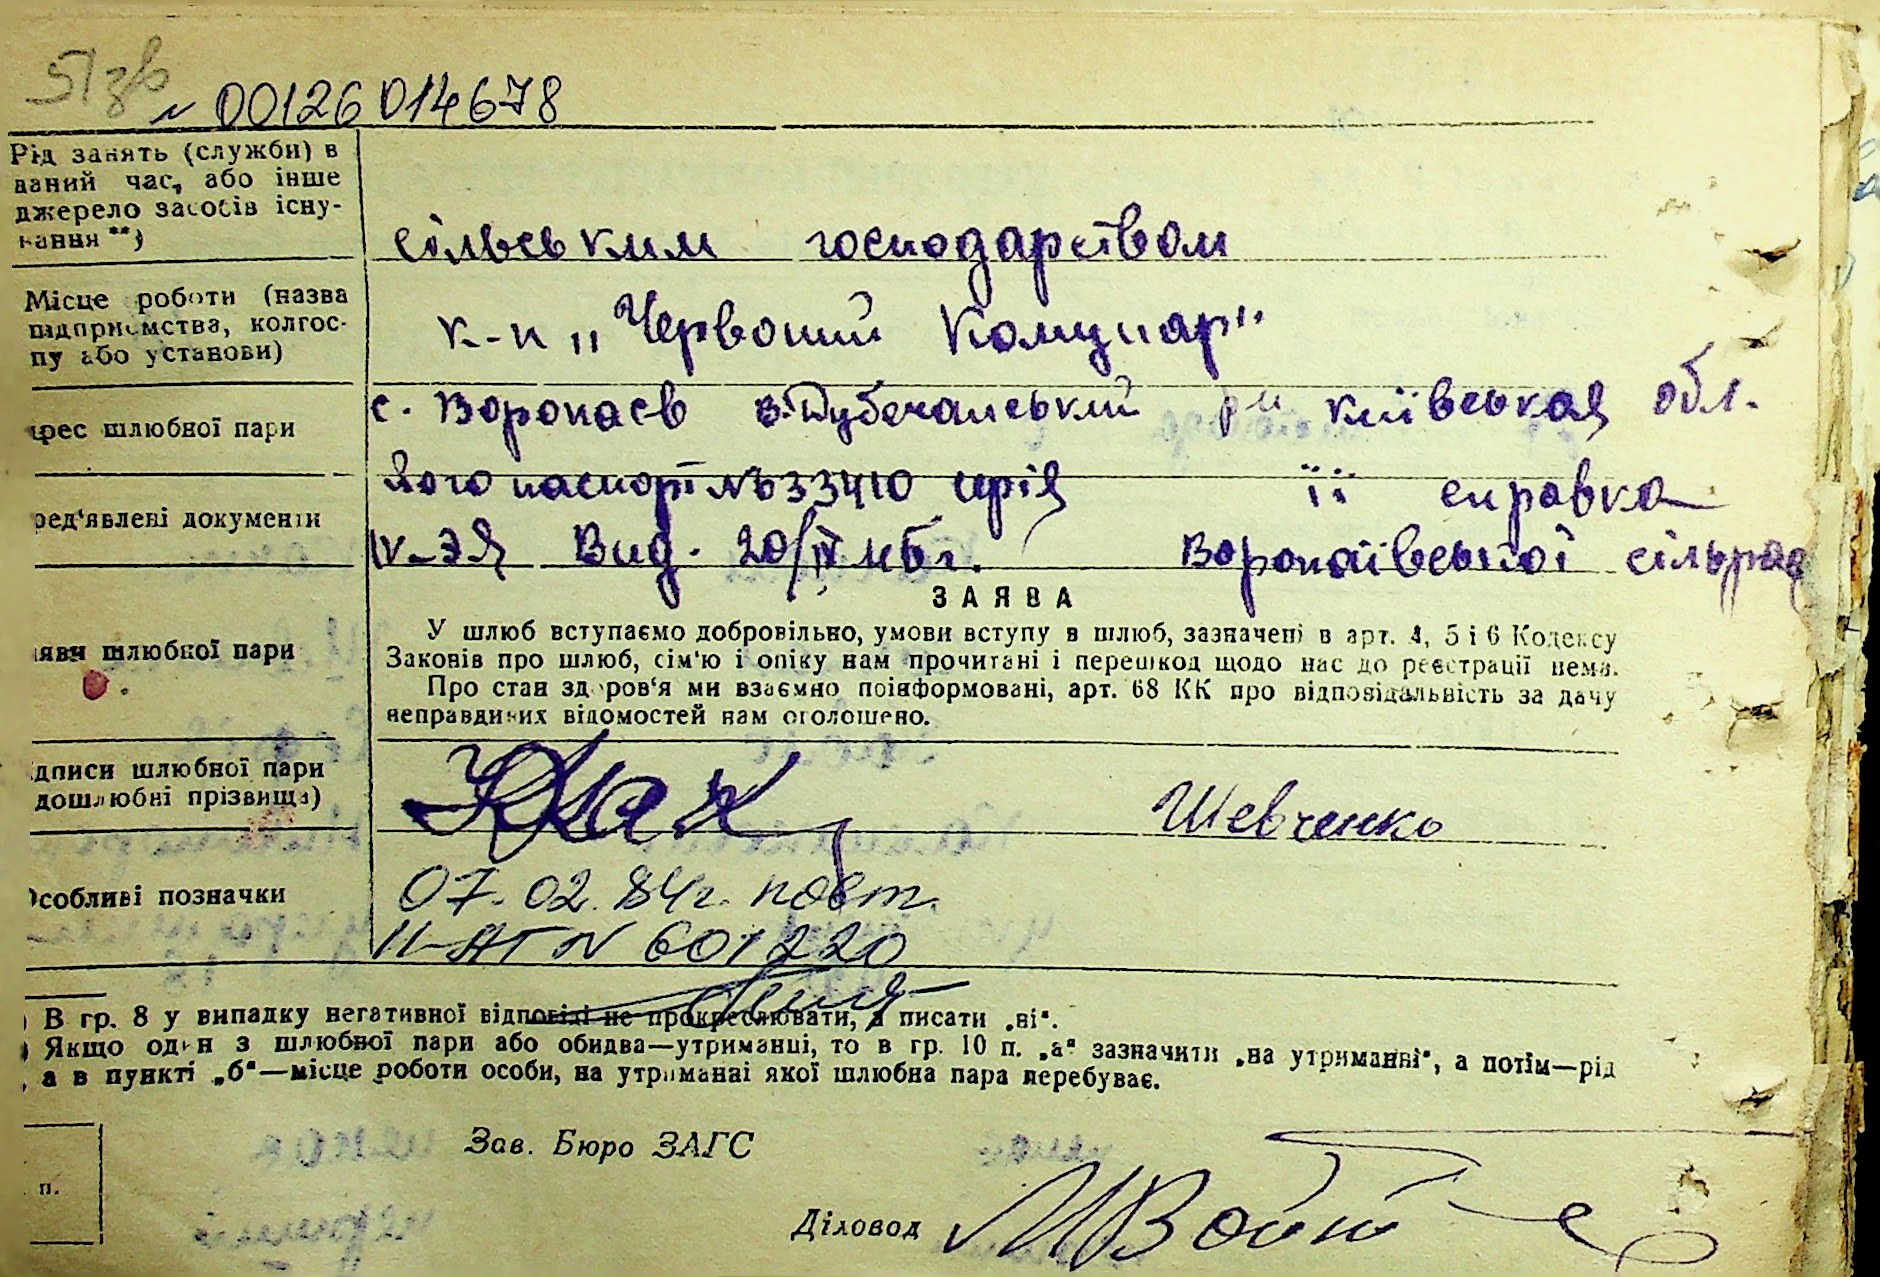 № 00126014678
Рід занять (служби) в
даний час, або інше
джерело засобів існу-
вання **)
сільським господарством
Місце роботи (назва
підприємства, колгос-
пу або установи)
к-п „Червоний Комунар"
дрес шлюбної пари
с. Воропаєв В.Дубечанський р-н київськая обл.
ред'явлені документи
його паспорт № 633410 серія її справка
IV-ЭЯ Вид. 20/IV 46г. Воропаївської сільрад
ЗАЯВА
яви шлюбної пари
У шлюб вступаємо добровільно, умови вступу в шлюб, зазначені в арт. 4, 5 і 6 Кодексу
Законів про шлюб, сім'ю і опіку нам прочитані і перешкод щодо нас до реєстрації нема.
Про стан здоров'я ми взаємно поінформовані, арт. 68 КК про відповідальність за дачу
неправдивих відомостей нам оголошено.
дписи шлюбної пари
дошлюбні прізвища)
Шевченко
Особливі позначки
07.02.84г. повт.
II-АГ N 601220
) В гр. 8 у випадку негативної відповіді не прокреслювати, а писати „ні".
) Якщо один з шлюбної пари або обидва—утриманці, то в гр. 10 п. „а" зазначити „на утриманні", а потім—рід
, а в пункті „б"—місце роботи особи, на утриманні якої шлюбна пара перебуває.
Зав. Бюро ЗАГС
п.
Діловод